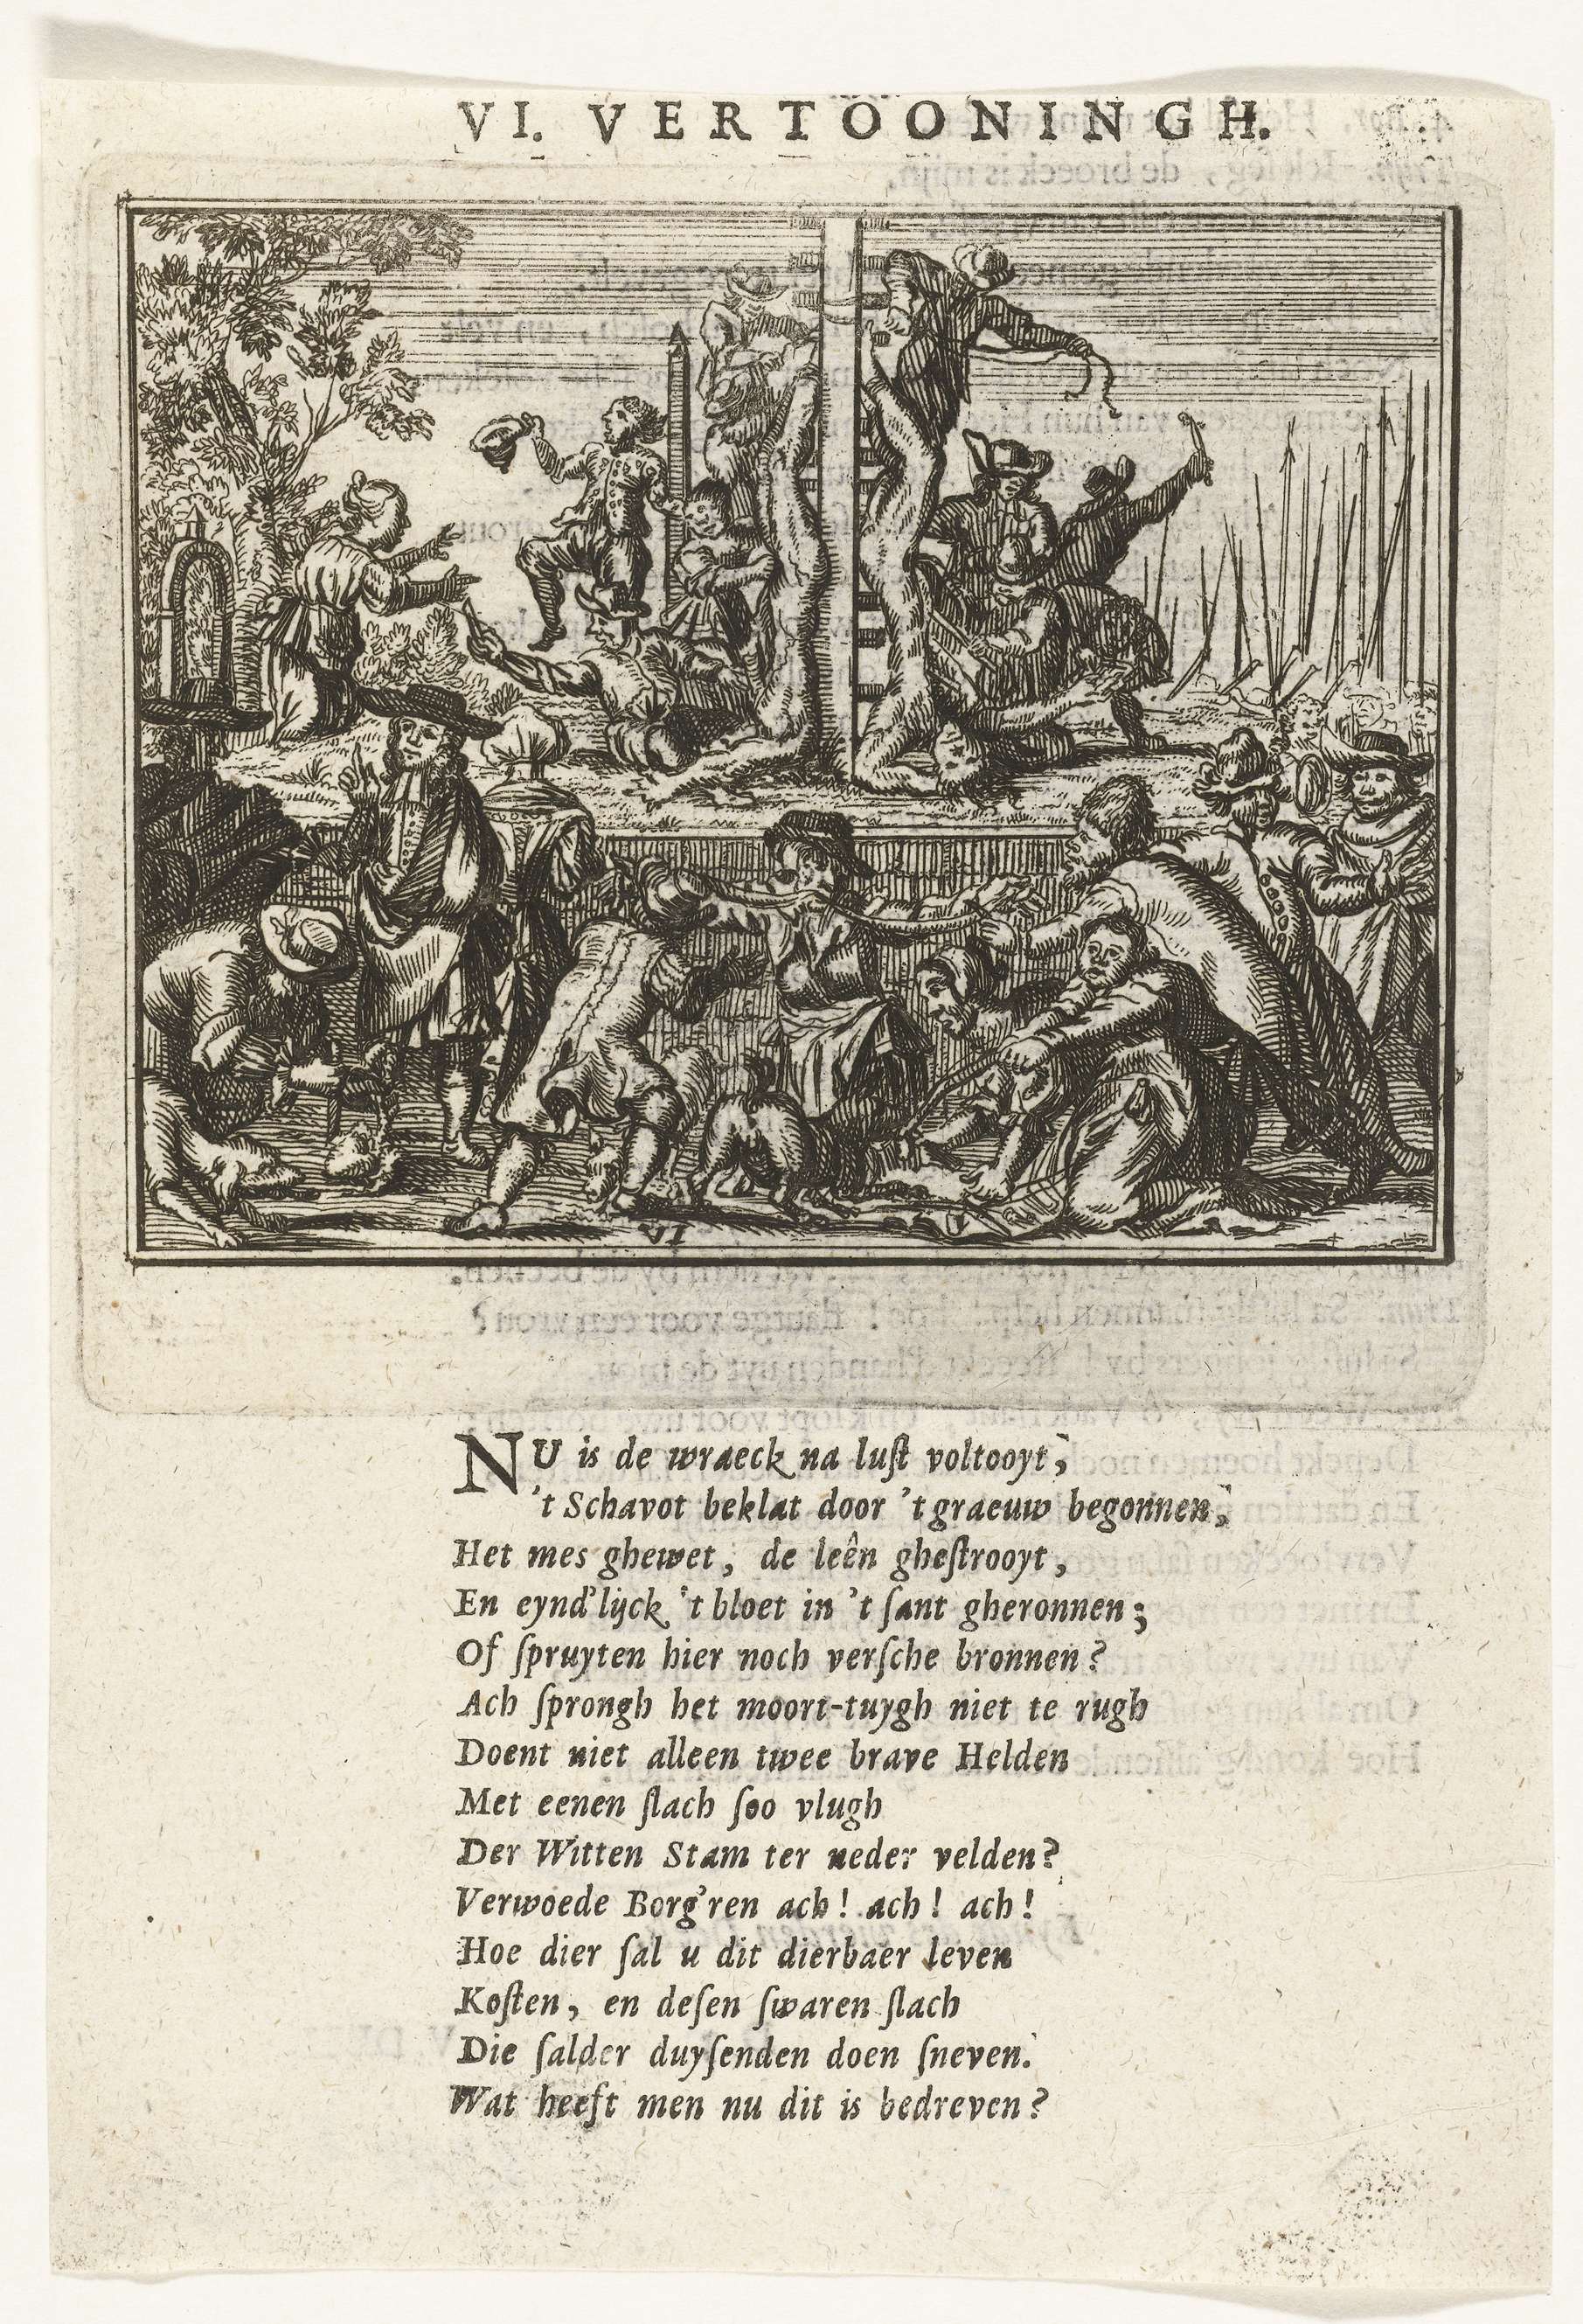 VI. VERTOONINGH.
NU is de wraeck na luſt voltooyt,
't Schavot beklat door 't graeuw begonnen,
Het mes ghewet, de leên gheſtrooyt,
En eynd'lijck 't bloet in 't ſant gheronnen;
Of ſpruyten hier noch verſche bronnen?
Ach ſprongh het moort-tuygh niet te rugh
Doent niet alleen twee brave Helden
Met eenen ſlach ſoo vlugh
Der Witten Stam ter neder velden?
Verwoede Borg'ren ach! ach! ach!
Hoe dier ſal u dit dierbaer leven
Koſten, en deſen ſwaren ſlach
Die ſalder duyſenden doen ſneven.
Wat heeft men nu dit is bedreven?